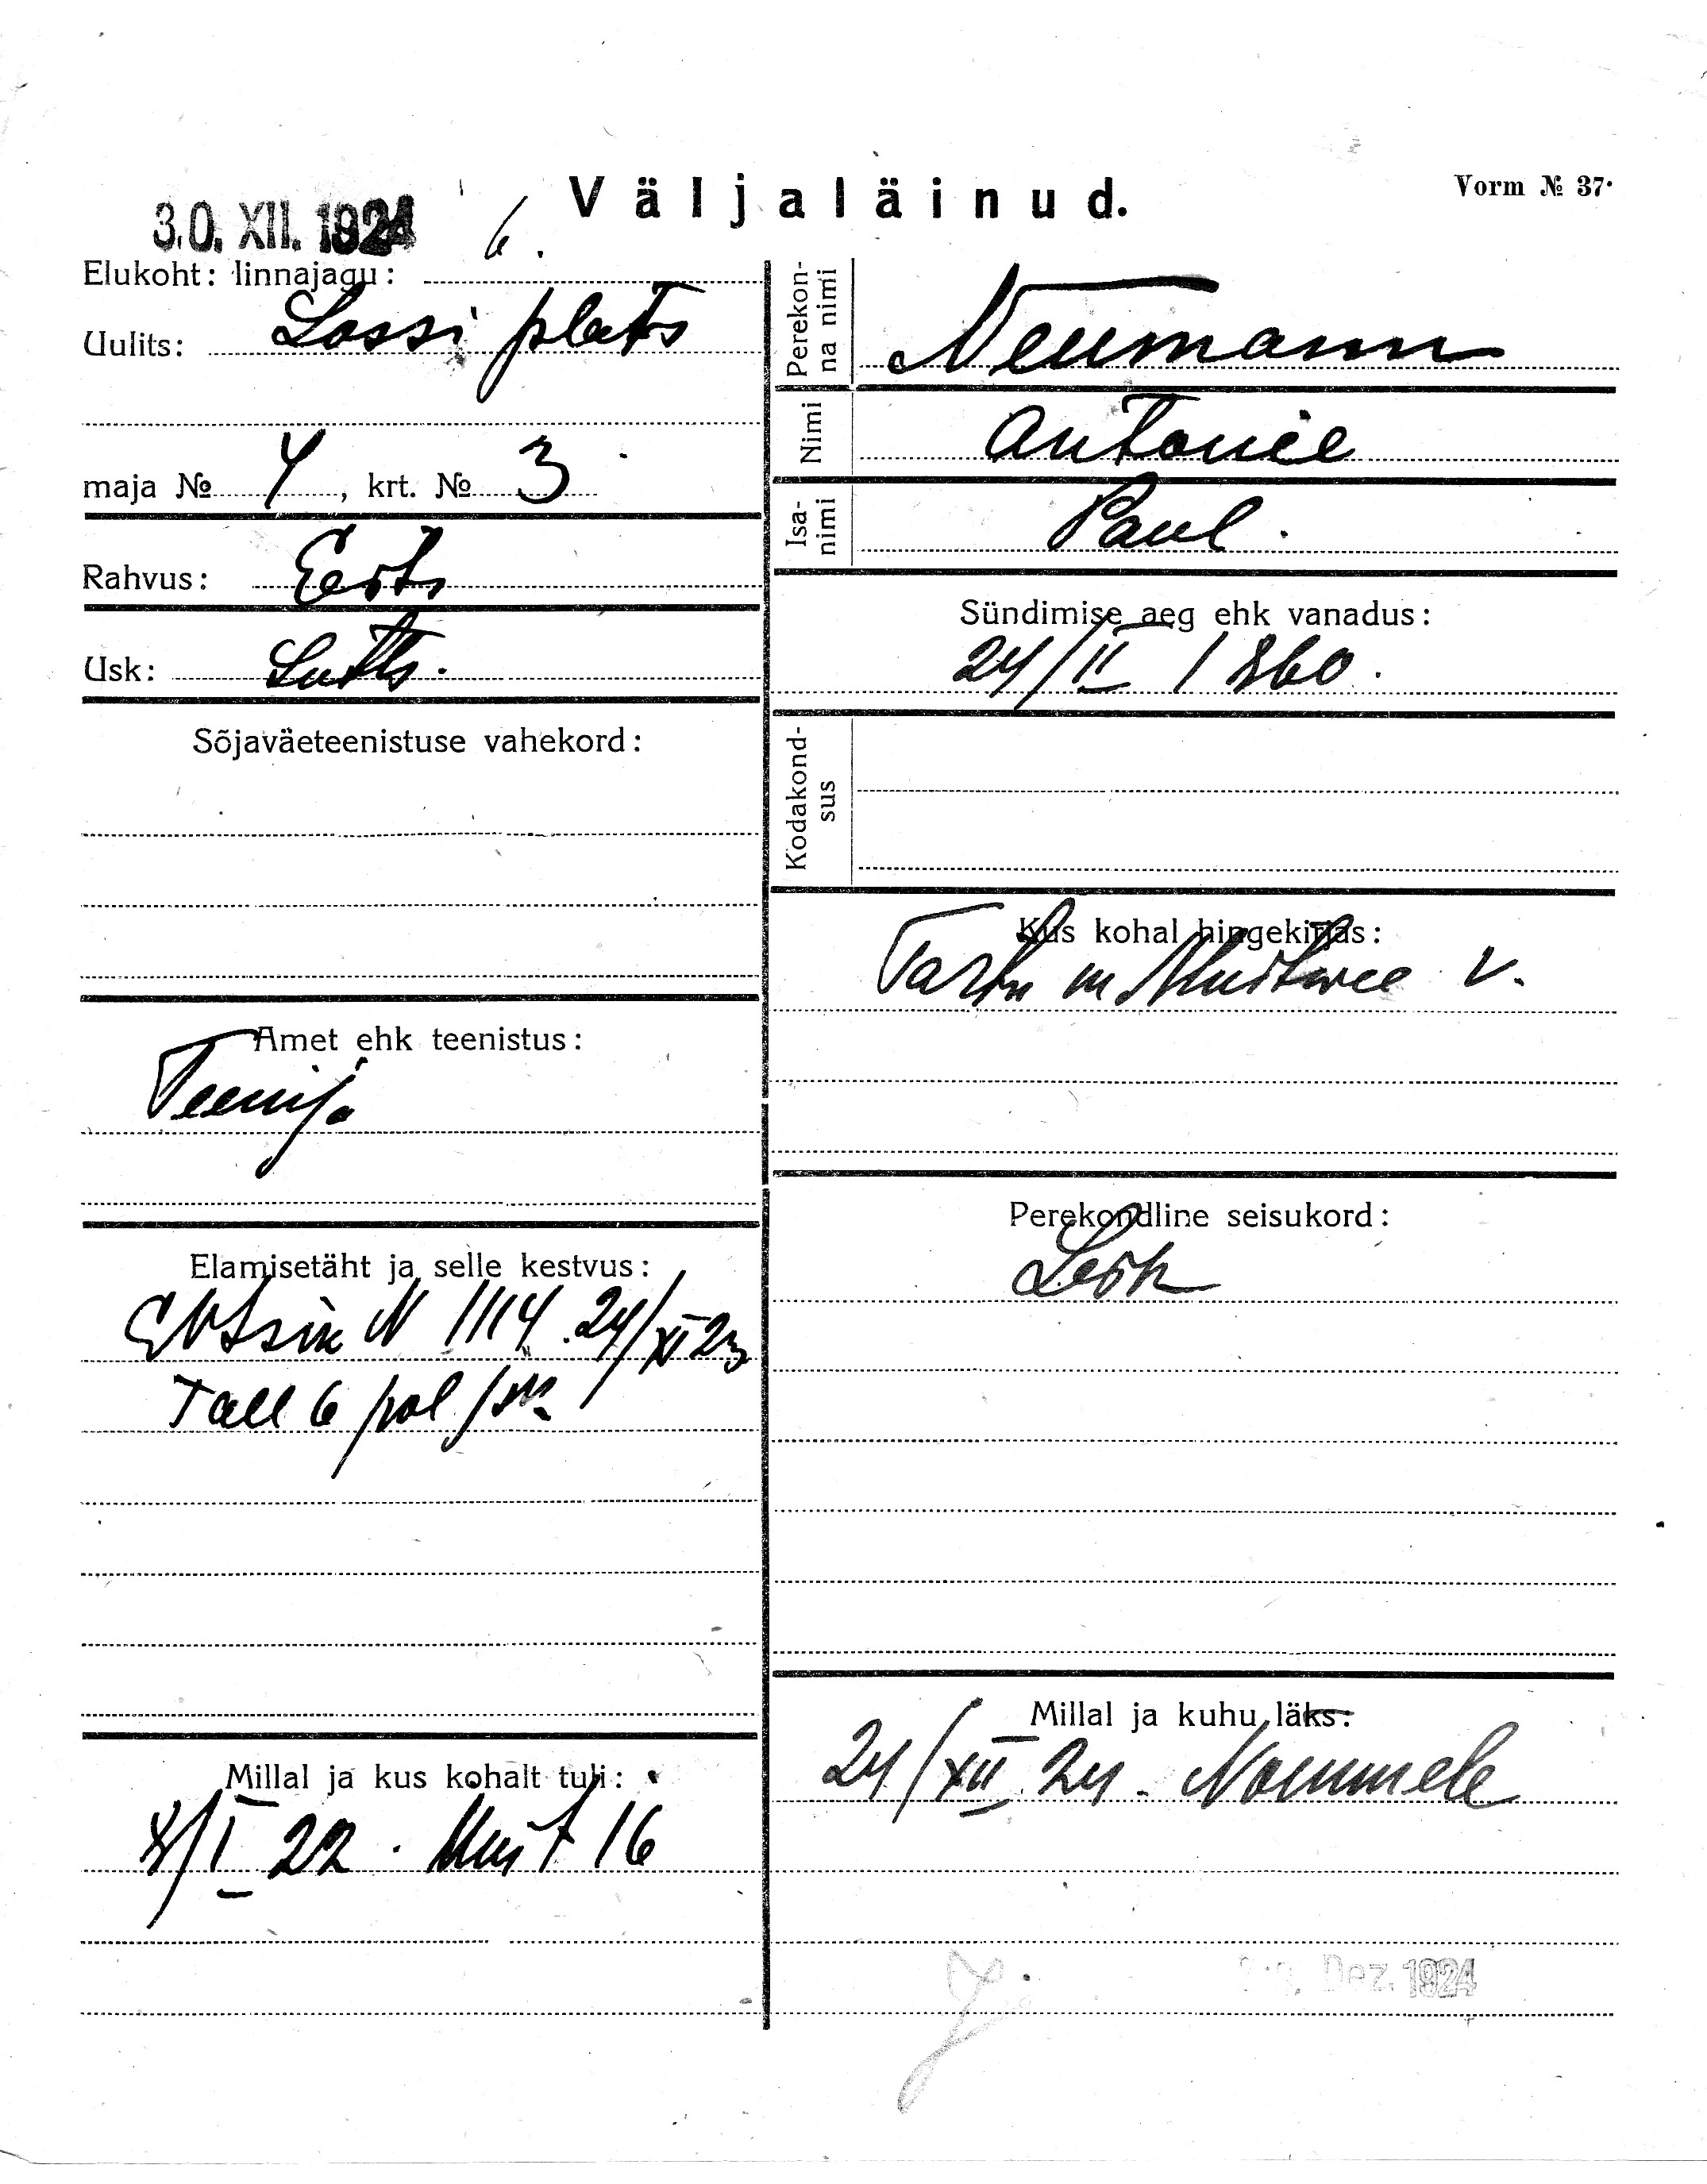 Väljaläinud.
Vorm № 37.
30. XII. 1924
6.
Elukoht: linnajagu:
Uulits: Lossi plats
maja № 4, krt. № 3
Rahvus: Eesti
Usk: Luth.
Sõjaväeteenistuse vahekord:
Amet ehk teenistus:
Teenija
Elamisetäht ja selle kestvus:
N 1114. 24/XI 23
Tall 6 pol jsk.
Millal ja kus kohalt tuli:
I 22. 16
Perekon-
na nimi
Neumann
Nimi
Antonie
Isa-
nimi
Paul.
Sündimise aeg ehk vanadus:
24/II 1860.
Kodakond-
sus
Kus kohal hingekirjas:
Tartu m v.
Perekondline seisukord:
Lesk
Millal ja kuhu läks:
24/XII 24. Nõmmele
Dez. 1924